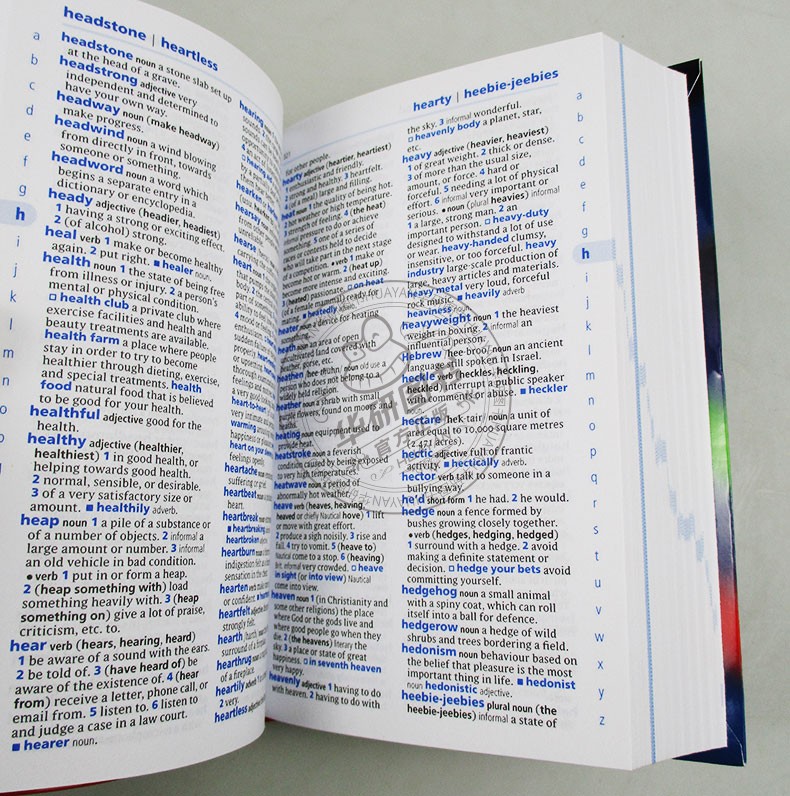 headstone | heartless
a
b
c
d
e
f
g
h
i
j
k
l
m
n
o
headstone noun a stone slab set up
at the head of a grave.
headstrong adjective very
independent and determined to
have your own way.
headway noun (make headway)
make progress.
headwind noun a wind blowing
from directly in front, towards
someone or something.
headword noun a word which
begins a separate entry in a
dictionary or encyclopedia.
heady adjective (headier, headiest)
1 having a strong or exciting effect.
2 (of alcohol) strong.
heal verb 1 make or become healthy
again. 2 put right. ■ healer noun.
health noun 1 the state of being free
from illness or injury. 2 a person's
mental or physical condition.
□ health club a private club where
exercise facilities and health and
beauty treatments are available.
health farm a place where people
stay in order to try to become
healthier through dieting, exercise,
and special treatments. health
food natural food that is believed
to be good for your health.
healthful adjective good for the
health.
healthy adjective (healthier,
healthiest) 1 in good health, or
helping towards good health.
2 normal, sensible, or desirable.
3 of a very satisfactory size or
amount. ■ healthily adverb.
heap noun 1 a pile of a substance or
of a number of objects. 2 informal a
large amount or number. 3 informal
an old vehicle in bad condition.
● verb 1 put in or form a heap.
2 (heap something with) load
something heavily with. 3 (heap
something on) give a lot of praise,
criticism, etc. to.
hear verb (hears, hearing, heard)
1 be aware of a sound with the ears.
2 be told of. 3 (have heard of) be
aware of the existence of. 4 (hear
from) receive a letter, phone call, or
email from. 5 listen to. 6 listen to
and judge a case in a law court.
■ hearer noun.
hearing
hearsay
hearse
heart noun
heart-to-heart
warming
heartache
heartbeat
heartbreak
■ heartbreaking
■ heartbroken
heartburn
hearten verb make
heartfelt adjective
strongly felt.
hearth
hearthrug noun
of a fireplace.
heartily adverb
2 very.
heartless
hearty | heebie-jeebies
for other people.
hearty adjective (heartier, heartiest)
1 enthusiastic and friendly.
2 strong and healthy. 3 heartfelt.
4 (of a meal) large and filling.
heat noun 1 the quality of being hot.
2 hot weather or high temperature.
3 strength of feeling. 4 (the heat)
pressure to do or achieve
something. 5 one of a series of
races or contests held to decide
who will take part in the next stage
of a competition. ● verb 1 make or
become hot or warm. 2 (heat up)
become more intense and exciting.
3 (heated) passionate. □ on heat
(of a female mammal) ready for
mating. ■ heatedly
heater noun a device for heating
something.
heath noun an area of open
uncultivated land covered with
heather, gorse, etc.
heathen /hee-thuhn/ noun old use a
person who does not belong to a
widely held religion.
heather noun a shrub with small
purple flowers, found on moors and
heaths.
heating noun equipment used to
provide heat.
heatstroke noun a feverish
condition caused by being exposed
to very high temperatures.
heatwave noun a period of
abnormally hot weather.
heave verb (heaves, heaving,
heaved or chiefly Nautical hove) 1 lift
or move with great effort.
2 produce a sigh noisily. 3 rise and
fall. 4 try to vomit. 5 (heave to)
Nautical come to a stop. 6 (heaving)
Brit. informal very crowded. □ heave
in sight (or into view) Nautical
come into view.
heaven noun 1 (in Christianity and
some other religions) the place
where God or the gods live and
where good people go when they
die. 2 (the heavens) literary the
sky. 3 a place or state of great
happiness. □ in seventh heaven
very happy.
heavenly adjective 1 having to do
with heaven. 2 having to do with
the sky. 3 informal wonderful.
□ heavenly body a planet, star,
etc.
heavy adjective (heavier, heaviest)
1 of great weight. 2 thick or dense.
3 of more than the usual size,
amount, or force. 4 hard or
forceful. 5 needing a lot of physical
effort. 6 informal very important or
serious. ● noun (plural heavies) informal
1 a large, strong man. 2 an
important person. □ heavy-duty
designed to withstand a lot of use
or wear. heavy-handed clumsy,
insensitive, or too forceful. heavy
industry large-scale production of
large, heavy articles and materials.
heavy metal very loud, forceful
rock music. ■ heavily adverb
heaviness noun.
heavyweight noun 1 the heaviest
weight in boxing. 2 informal an
influential person.
Hebrew /hee-broo/ noun an ancient
language still spoken in Israel.
heckle verb (heckles, heckling,
heckled) interrupt a public speaker
with comments or abuse. ■ heckler
noun.
hectare /hek-tair/ noun a unit of
area equal to 10,000 square metres
(2.471 acres).
hectic adjective full of frantic
activity. ■ hectically adverb.
hector verb talk to someone in a
bullying way.
he'd short form 1 he had. 2 he would.
hedge noun a fence formed by
bushes growing closely together.
● verb (hedges, hedging, hedged)
1 surround with a hedge. 2 avoid
making a definite statement or
decision. □ hedge your bets avoid
committing yourself.
hedgehog noun a small animal
with a spiny coat, which can roll
itself into a ball for defence.
hedgerow noun a hedge of wild
shrubs and trees bordering a field.
hedonism noun behaviour based on
the belief that pleasure is the most
important thing in life. ■ hedonist
noun hedonistic adjective.
heebie-jeebies plural noun (the
heebie-jeebies) informal a state of
a
b
c
d
e
f
g
h
i
j
k
l
m
n
o
p
q
r
s
t
u
v
w
x
y
z